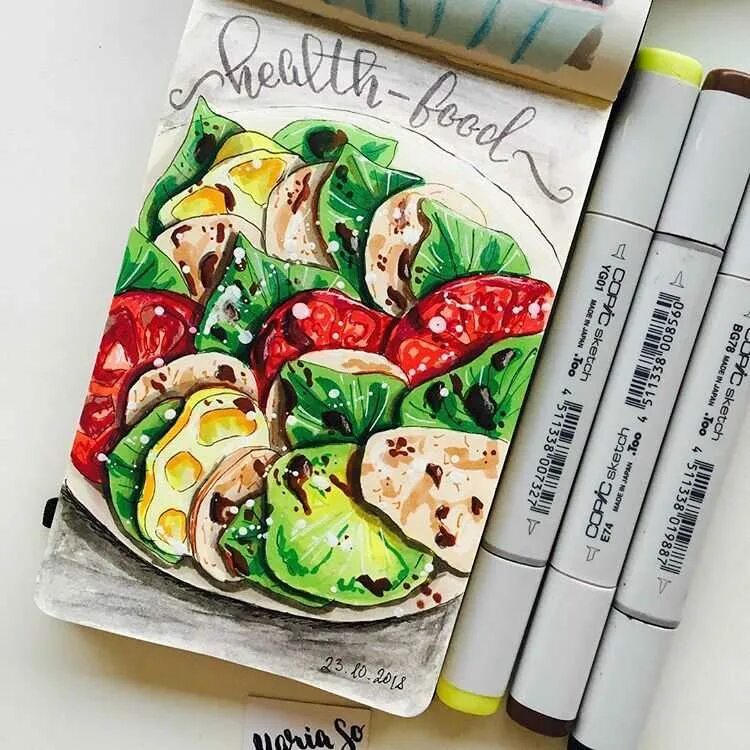 health-food
23.10.2018
Maria So
YG01
COPIC sketch
MADE IN JAPAN .Too
4 511338 007327
E74
COPIC sketch
MADE IN JAPAN .Too
4 511338 008560
BG78
COPIC sketch
MADE IN JAPAN .Too
4 511338 019887